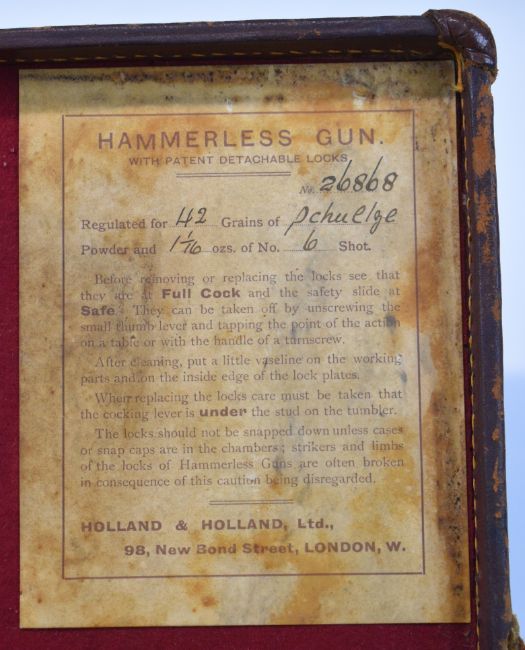 HAMMERLESS GUN.
WITH PATENT DETACHABLE LOCKS
No. 26868
Regulated for 42 Grains of Schultze
Powder and 1 1/16 ozs. of No. 6 Shot.
Before removing or replacing the locks see that
they are at Full Cock and the safety slide at
Safe. They can be taken off by unscrewing the
small thumb lever and tapping the point of the action
on a table or with the handle of a turnscrew.
After cleaning, put a little vaseline on the working
parts and on the inside edge of the lock plates.
When replacing the locks care must be taken that
the cocking lever is under the stud on the tumbler.
The locks should not be snapped down unless cases
or snap caps are in the chambers; strikers and limbs
of the locks of Hammerless Guns are often broken
in consequence of this caution being disregarded.
HOLLAND & HOLLAND, Ltd.,
98, New Bond Street, LONDON, W.